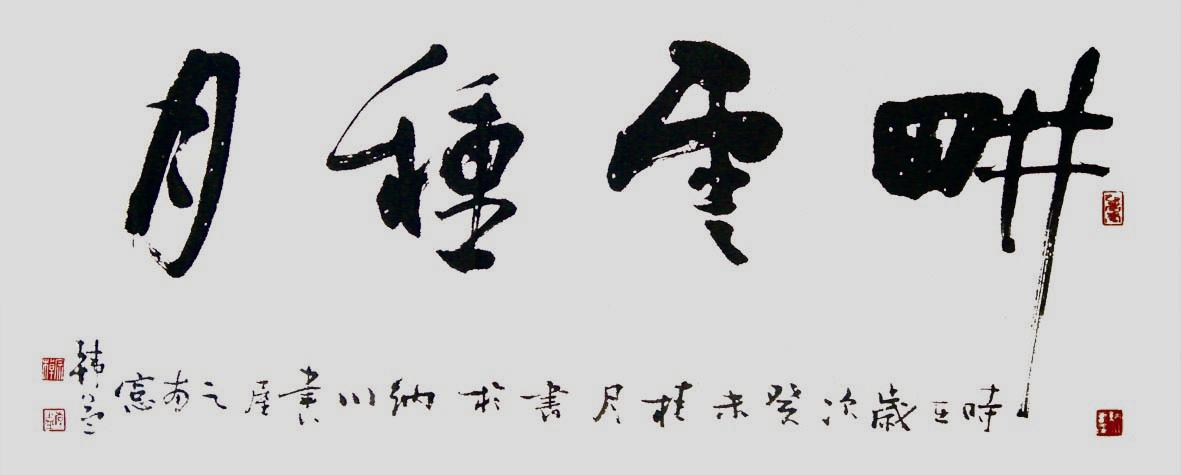 畊雲種月
時在歲次癸未桂月書於納川書屋之南窗
韓